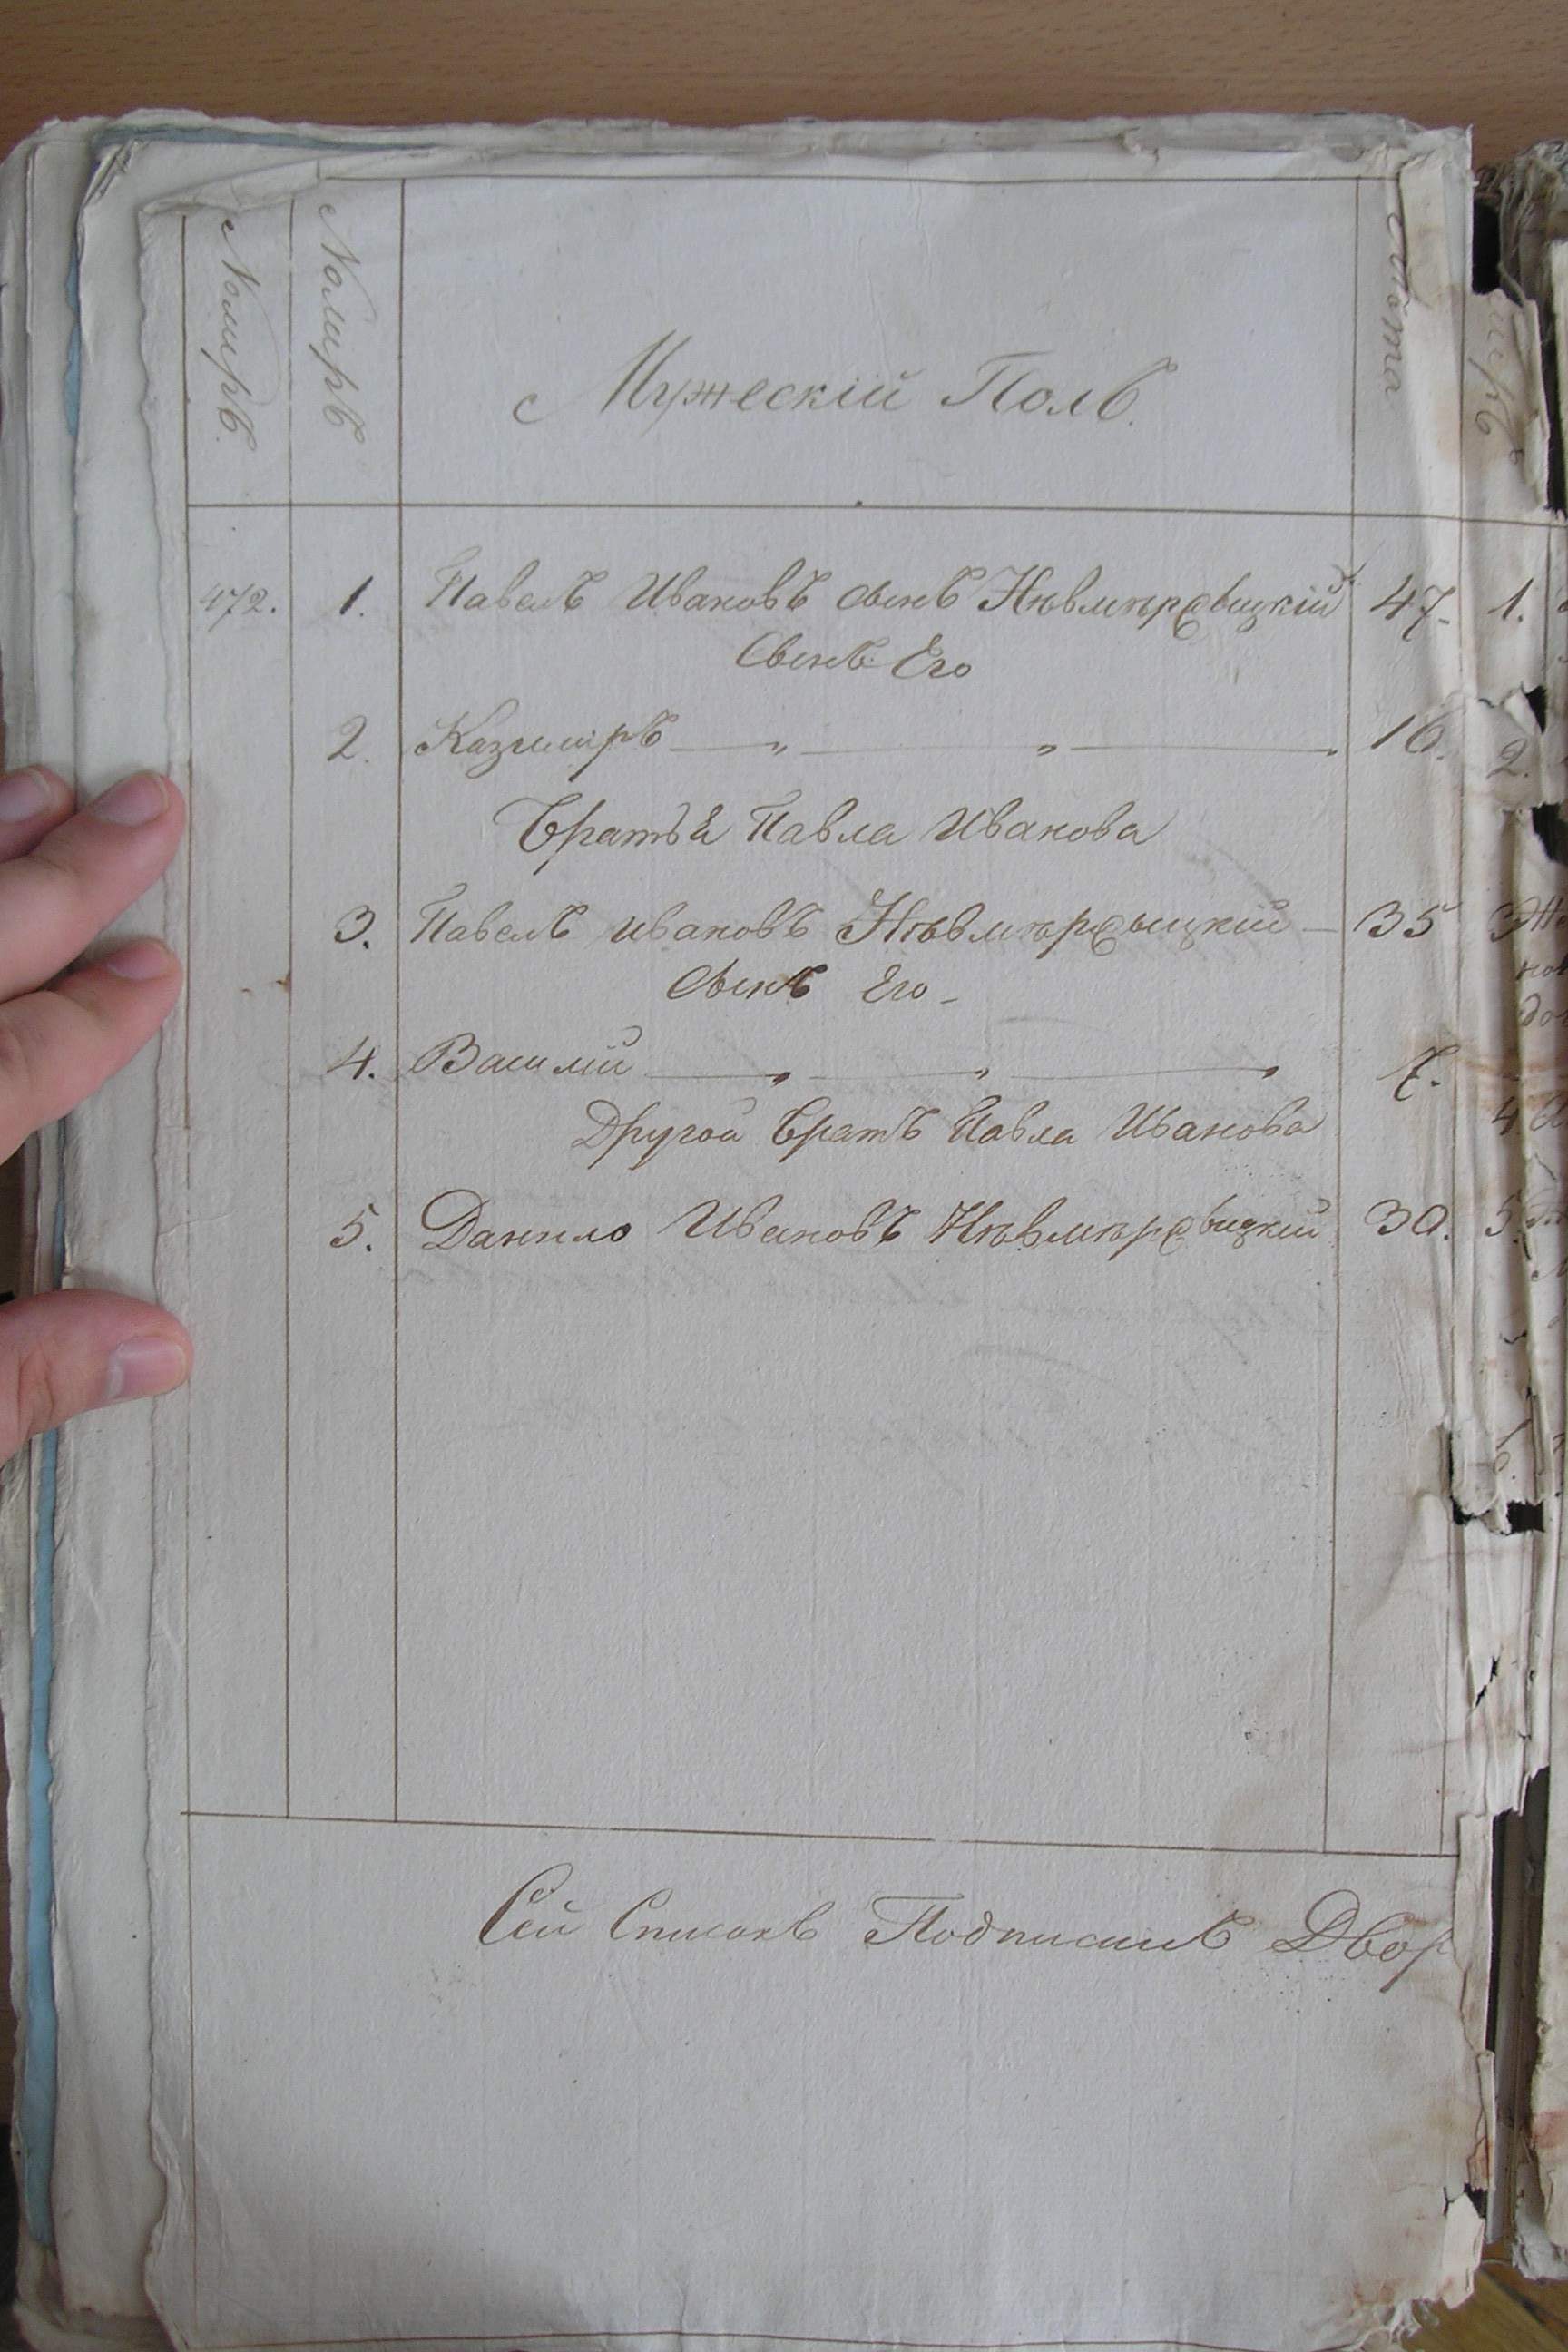 Номеръ. Номеръ Мужескій Полъ. Лѣта
472. 1. Павелъ Ивановъ сынъ Нѣвмѣровицкій 47. 1.
Сынъ Его
2. Казимиръ — „ — „ — 16. 2.
Братья Павла Иванова
3. Павелъ Ивановъ Нѣвмѣровыцкій — 35
Сынъ Его -
4. Василій — „ — „ — „ 7.
Другой братъ Павла Иванова 4
5. Данило Ивановъ Нѣвмѣровицкій 30. 5.
Сей Списокъ Подписалъ Двор